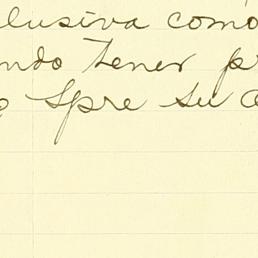 lusiva como
ndo tener p
o Spre su a